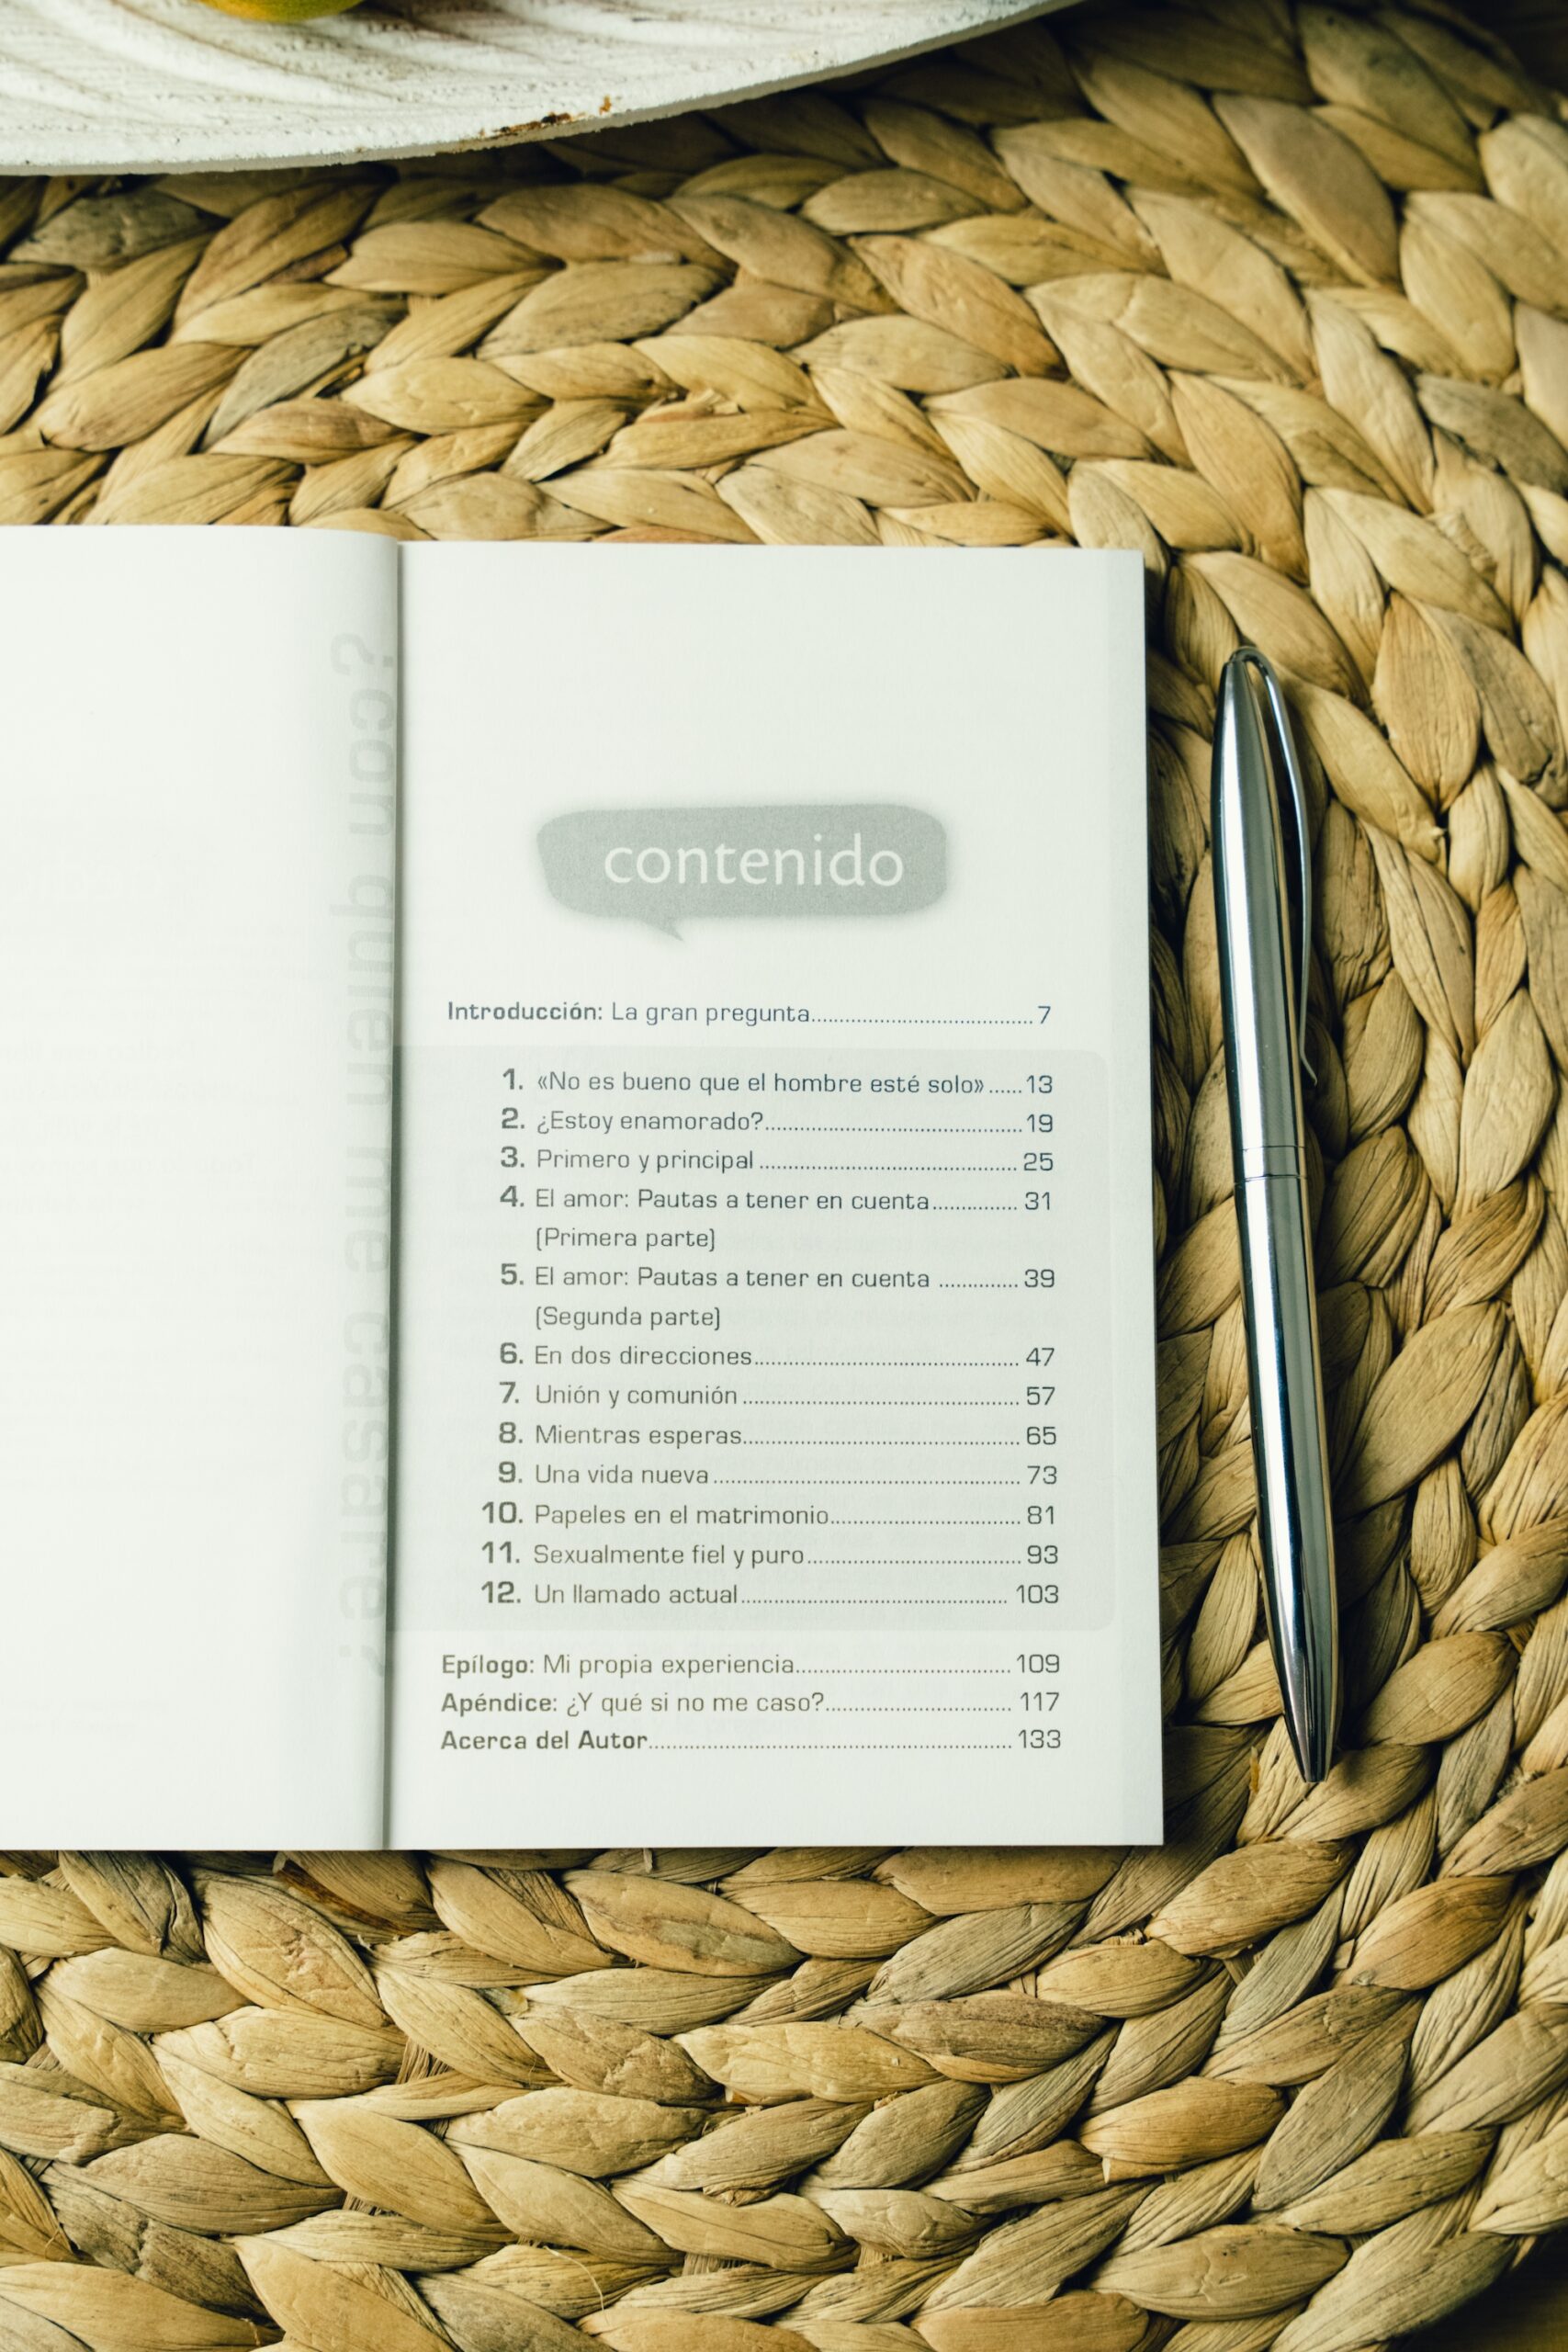 ¿con quién me casaré?
contenido
Introducción: La gran pregunta........................................ 7
1. «No es bueno que el hombre esté solo» ......13
2. ¿Estoy enamorado?..............................................19
3. Primero y principal .............................................. 25
4. El amor: Pautas a tener en cuenta............... 31
(Primera parte)
5. El amor: Pautas a tener en cuenta .............. 39
(Segunda parte)
6. En dos direcciones............................................... 47
7. Unión y comunión ................................................. 57
8. Mientras esperas................................................. 65
9. Una vida nueva ...................................................... 73
10. Papeles en el matrimonio.................................. 81
11. Sexualmente fiel y puro...................................... 93
12. Un llamado actual................................................ 103
Epílogo: Mi propia experiencia....................................... 109
Apéndice: ¿Y qué si no me caso?................................. 117
Acerca del Autor................................................................. 133